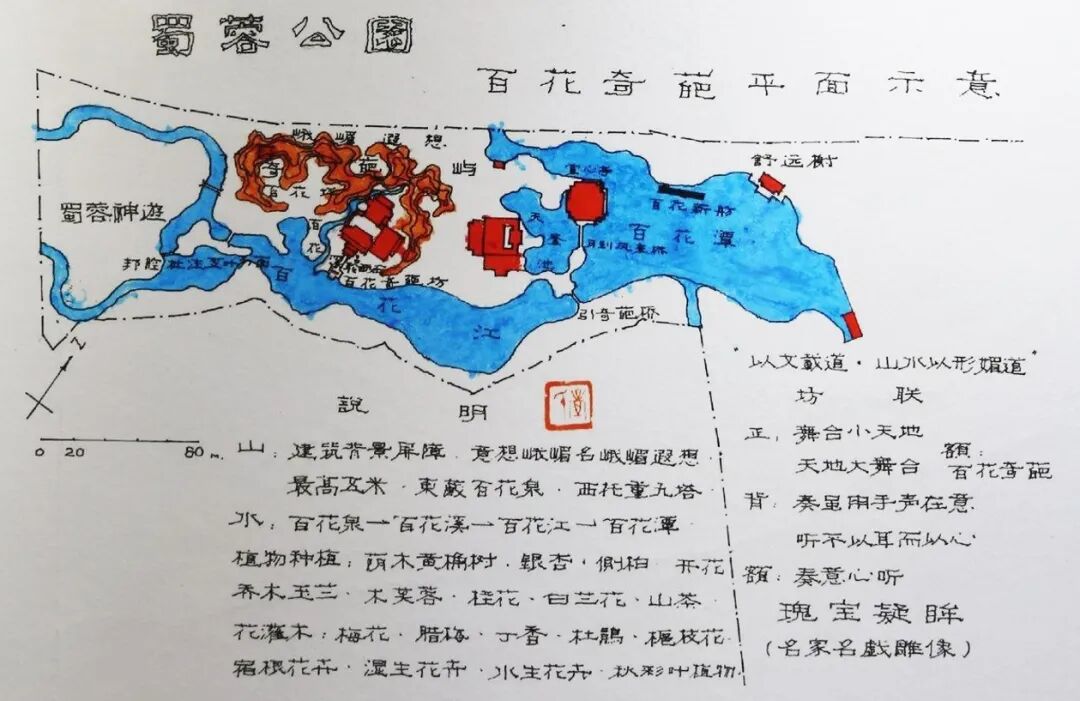 蜀蓉公園
百花奇葩平面示意
峨嵋遐想
奇葩屿
百花塔
蜀蓉神遊
百花
百花奇葩坊
百花江
天
池
百花新舫
百花潭
舒远榭
引奇葩桥
N
0 20 80 M.
説明
山：建筑背景屏障．意想峨嵋名峨嵋遐想
最高五米．東蔵百花泉．西托重九塔
水：百花泉→百花溪→百花江→百花潭
植物种植：荫木黄桷树．銀杏．側柏．开花
乔木玉兰．木芙蓉．桂花．白兰花．山茶
花灌木：梅花．腊梅．丁香．杜鵑．栀枝花
宿根花卉．湿生花卉．水生花卉．秋彩叶植物
"以文載道．山水以形媚道"
坊联
正：舞台小天地
天地大舞台
額：百花奇葩
背：奏虽用手声在意
听不以耳而以心
額：奏意心听
瑰宝疑眸
（名家名戲雕像）